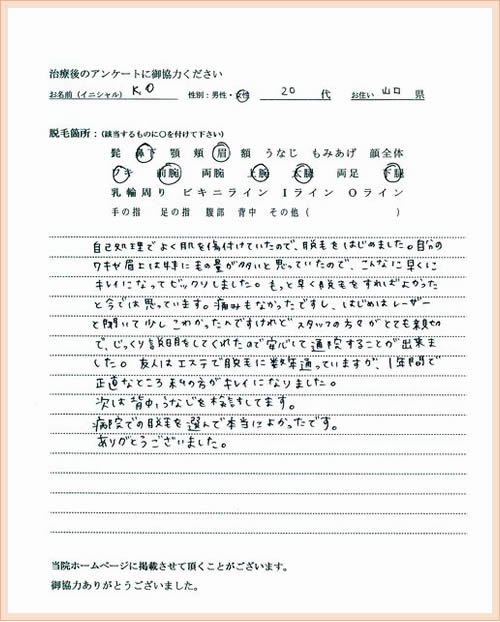 治療後のアンケートに御協力ください
お名前(イニシャル) K.O 性別:男性・女性 20 代 お住い 山口 県
脱毛箇所:(該当するものに○を付けて下さい)
髭 鼻下 顎 頬 眉 額 うなじ もみあげ 顔全体
ワキ 前腕 両腕 上腕 太腿 両足 下腿
乳輪周り ビキニライン Iライン Oライン
手の指 足の指 腹部 背中 その他( )
自己処理でよく肌を傷付けていたので、脱毛をはじめました。自分の
ワキや眉上は特に毛の量が多いと思っていたので、こんなに早くに
キレイになってビックリしました。もっと早く脱毛をすればよかった
と今では思っています。痛みもなかったですし、はじめはレーザー
と聞いて少しこわかったんですけれどスタッフの方々がとても親切
で、じっくり説明をしてくれたので安心して通院することが出来ま
した。友人はエステで脱毛に数年通っていますが、1年間で
正直なところ私の方がキレイになりました。
次は背中、うなじを検討してます。
病院での脱毛を選んで本当によかったです。
ありがとうございました。
当院ホームページに掲載させて頂くことがございます。
御協力ありがとうございました。